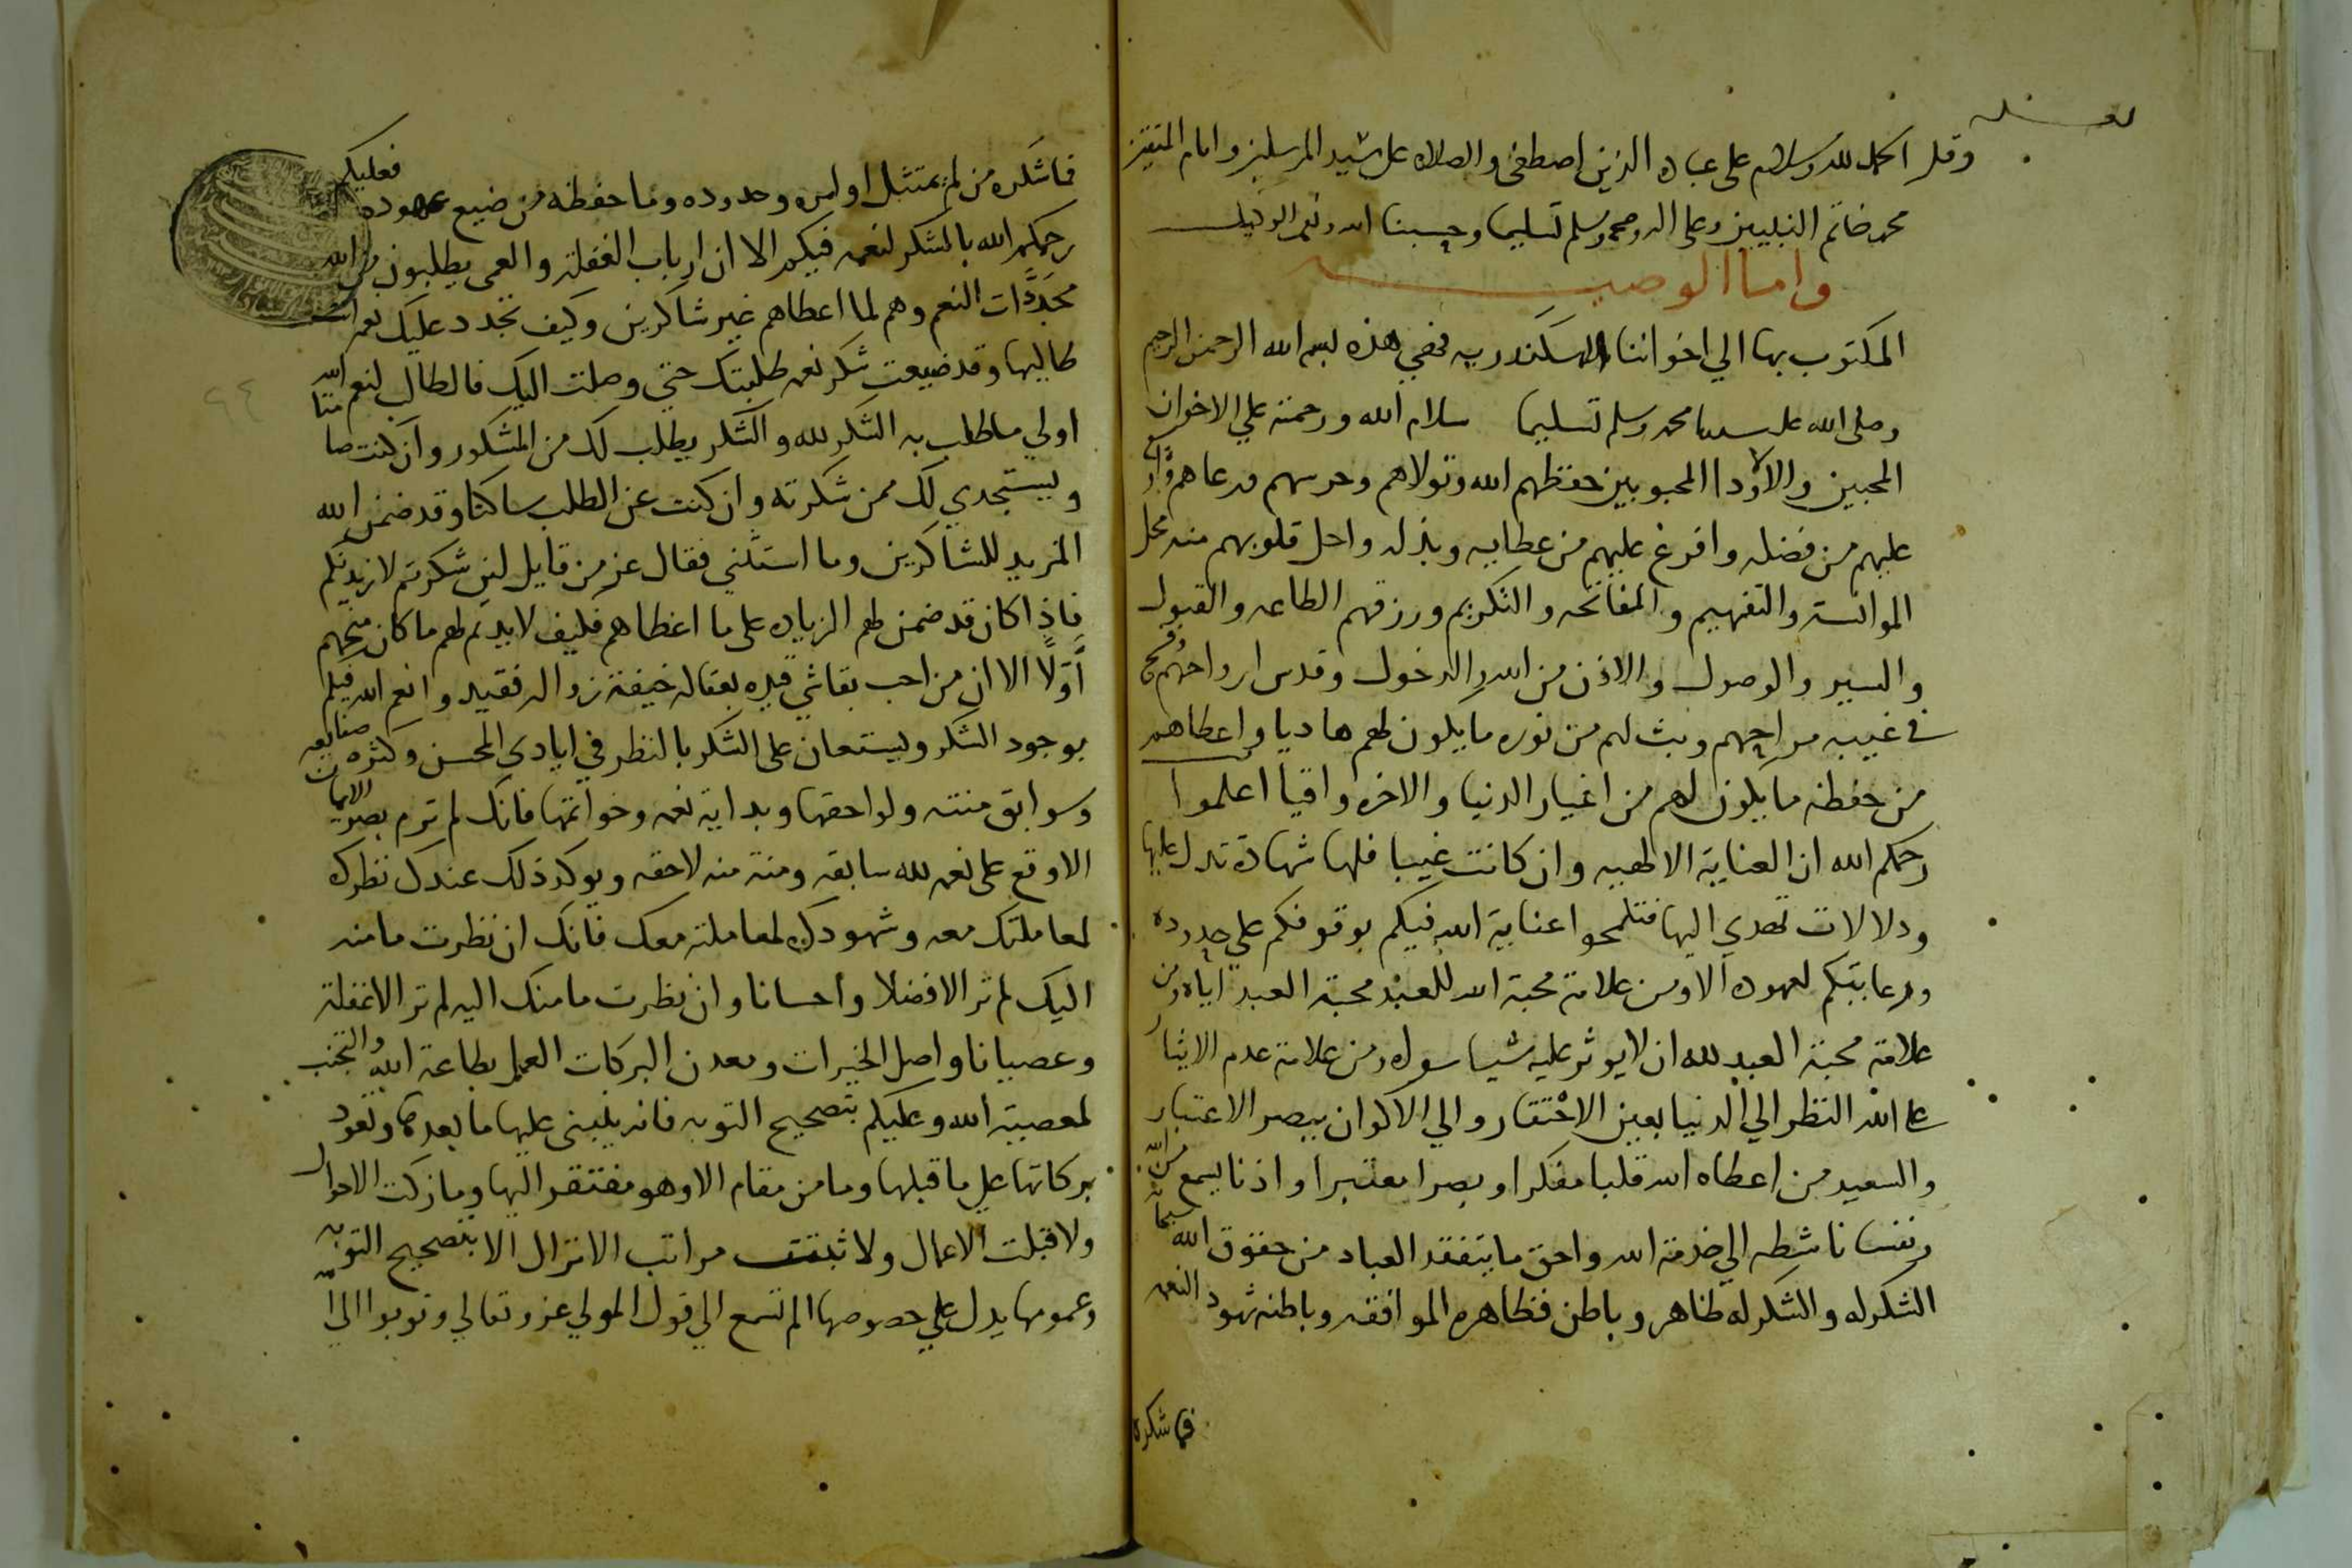 وقل الحمد لله وسلام على عباده الذين اصطفى والصلاه على سيد المرسلين وامام المتقين
محمد خاتم النبيين وعلى اله وصحبه وسلم تسليما وحسبنا الله ونعم الوكيل
واما الوصيه
المكتوب بها الي اخواننا بالاسكندريه فهي هذه بسم الله الرحمن الرحيم
وصلى الله على سيدنا محمد وسلم تسليما سلام الله ورحمته علي الاخوان
المحبين والاودا المحبوبين حفظهم الله وتولاهم وحرسهم ورعاهم وادام
عليهم من فضله وافرغ عليهم من عطايه وبذله واحل قلوبهم منه محل
الموانسة والتفهيم والمفاتحه والتكريم ورزقهم الطاعه والقبول
والسير والوصول والاذن من الله والدخول وقدس ارواحهم وفتح
في غيبه مراحهم وبث لهم من نوره ما يكون لهم هاديا واعطاهم
من حفظه ما يكون لهم من اغيار الدنيا والاخره واقيا اعلموا
رحمكم الله ان العناية الالهيه وان كانت غيبا فلها شهادة تدل عليها
ودلالات تهدي اليها فتلمحوا عناية الله فيكم بوقوفكم علي حدوده
ورعايتكم لعهوده الا ومن علامة محبة الله للعبد محبة العبد اياه ومن
علامة محبة العبد لله ان لا يوثر عليه شيا سواه ومن علامة عدم الايثار
على الله النظر الي الدنيا بعين الاحتقار والي الاكوان ببصر الاعتبار
والسعيد من اعطاه الله قلبا مفكرا وبصرا معتبرا واذنا يسمع من الله
ونفسا ناشطه الي خدمة الله واحق ما يتفقد العباد من حقوق الله سبحانه
الشكر له والشكر له ظاهر وباطن فظاهره الموافقه وباطنه شهود النعمه
فما شكره
فما شكره من لم يمتثل اوامره وحدوده وما حفظه من ضيع عهوده فعليكم
رحمكم الله بالشكر لنعمه فيكم الا ان ارباب الغفلة والعمى يطلبون من الله
مجددات النعم وهم لما اعطاهم غير شاكرين وكيف تجدد عليك نعم انت
طالبها وقد ضيعت شكر نعم طلبتك حتي وصلت اليك فالطالب لنعم الله
اولي ما طلب به الشكر لله والشكر يطلب لك من المشكور وان كنت صامتا
ويستجدي لك ممن شكرته وان كنت عن الطلب ساكتا وقد ضمن الله
المزيد للشاكرين وما استثني فقال عز من قايل لين شكرتم لازيدنكم
فاذا كان قد ضمن لهم الزياده على ما اعطاهم فكيف لا يديم لهم ما كان منحهم
اولا الا ان من احب بقا شي قيده بعقاله خيفة زواله فقيدوا نعم الله فيكم
بوجود الشكر ويستعان على الشكر بالنظر في ايادي المحسن وكثره صنايعه
وسوابق منته ولواحقها وبداية نعمه وخواتمها فانك لم ترم ببصر الايمان
الا وقع على نعم لله سابقه ومنة منه لاحقه ويوكد ذلك عندك نظرك
لمعاملتك معه وشهودك لمعاملته معك فانك ان نظرت ما منه
اليك لم تر الا فضلا واحسانا وان نظرت ما منك اليه لم تر الا غفلة
وعصيانا واصل الخيرات ومعدن البركات العمل بطاعة الله والتجنب
لمعصية الله وعليكم بتصحيح التوبه فانه ينبنى عليها ما بعدها وتعود
بركاتها علي ما قبلها وما من مقام الا وهو مفتقر اليها وما زكت الاحوال
ولا قبلت الاعمال ولا ثبتت مراتب الانزال الا بتصحيح التوبه
وعمومها يدل علي خصوصها الم تسمع الي قول المولي عز وتعالي وتوبوا الي الله